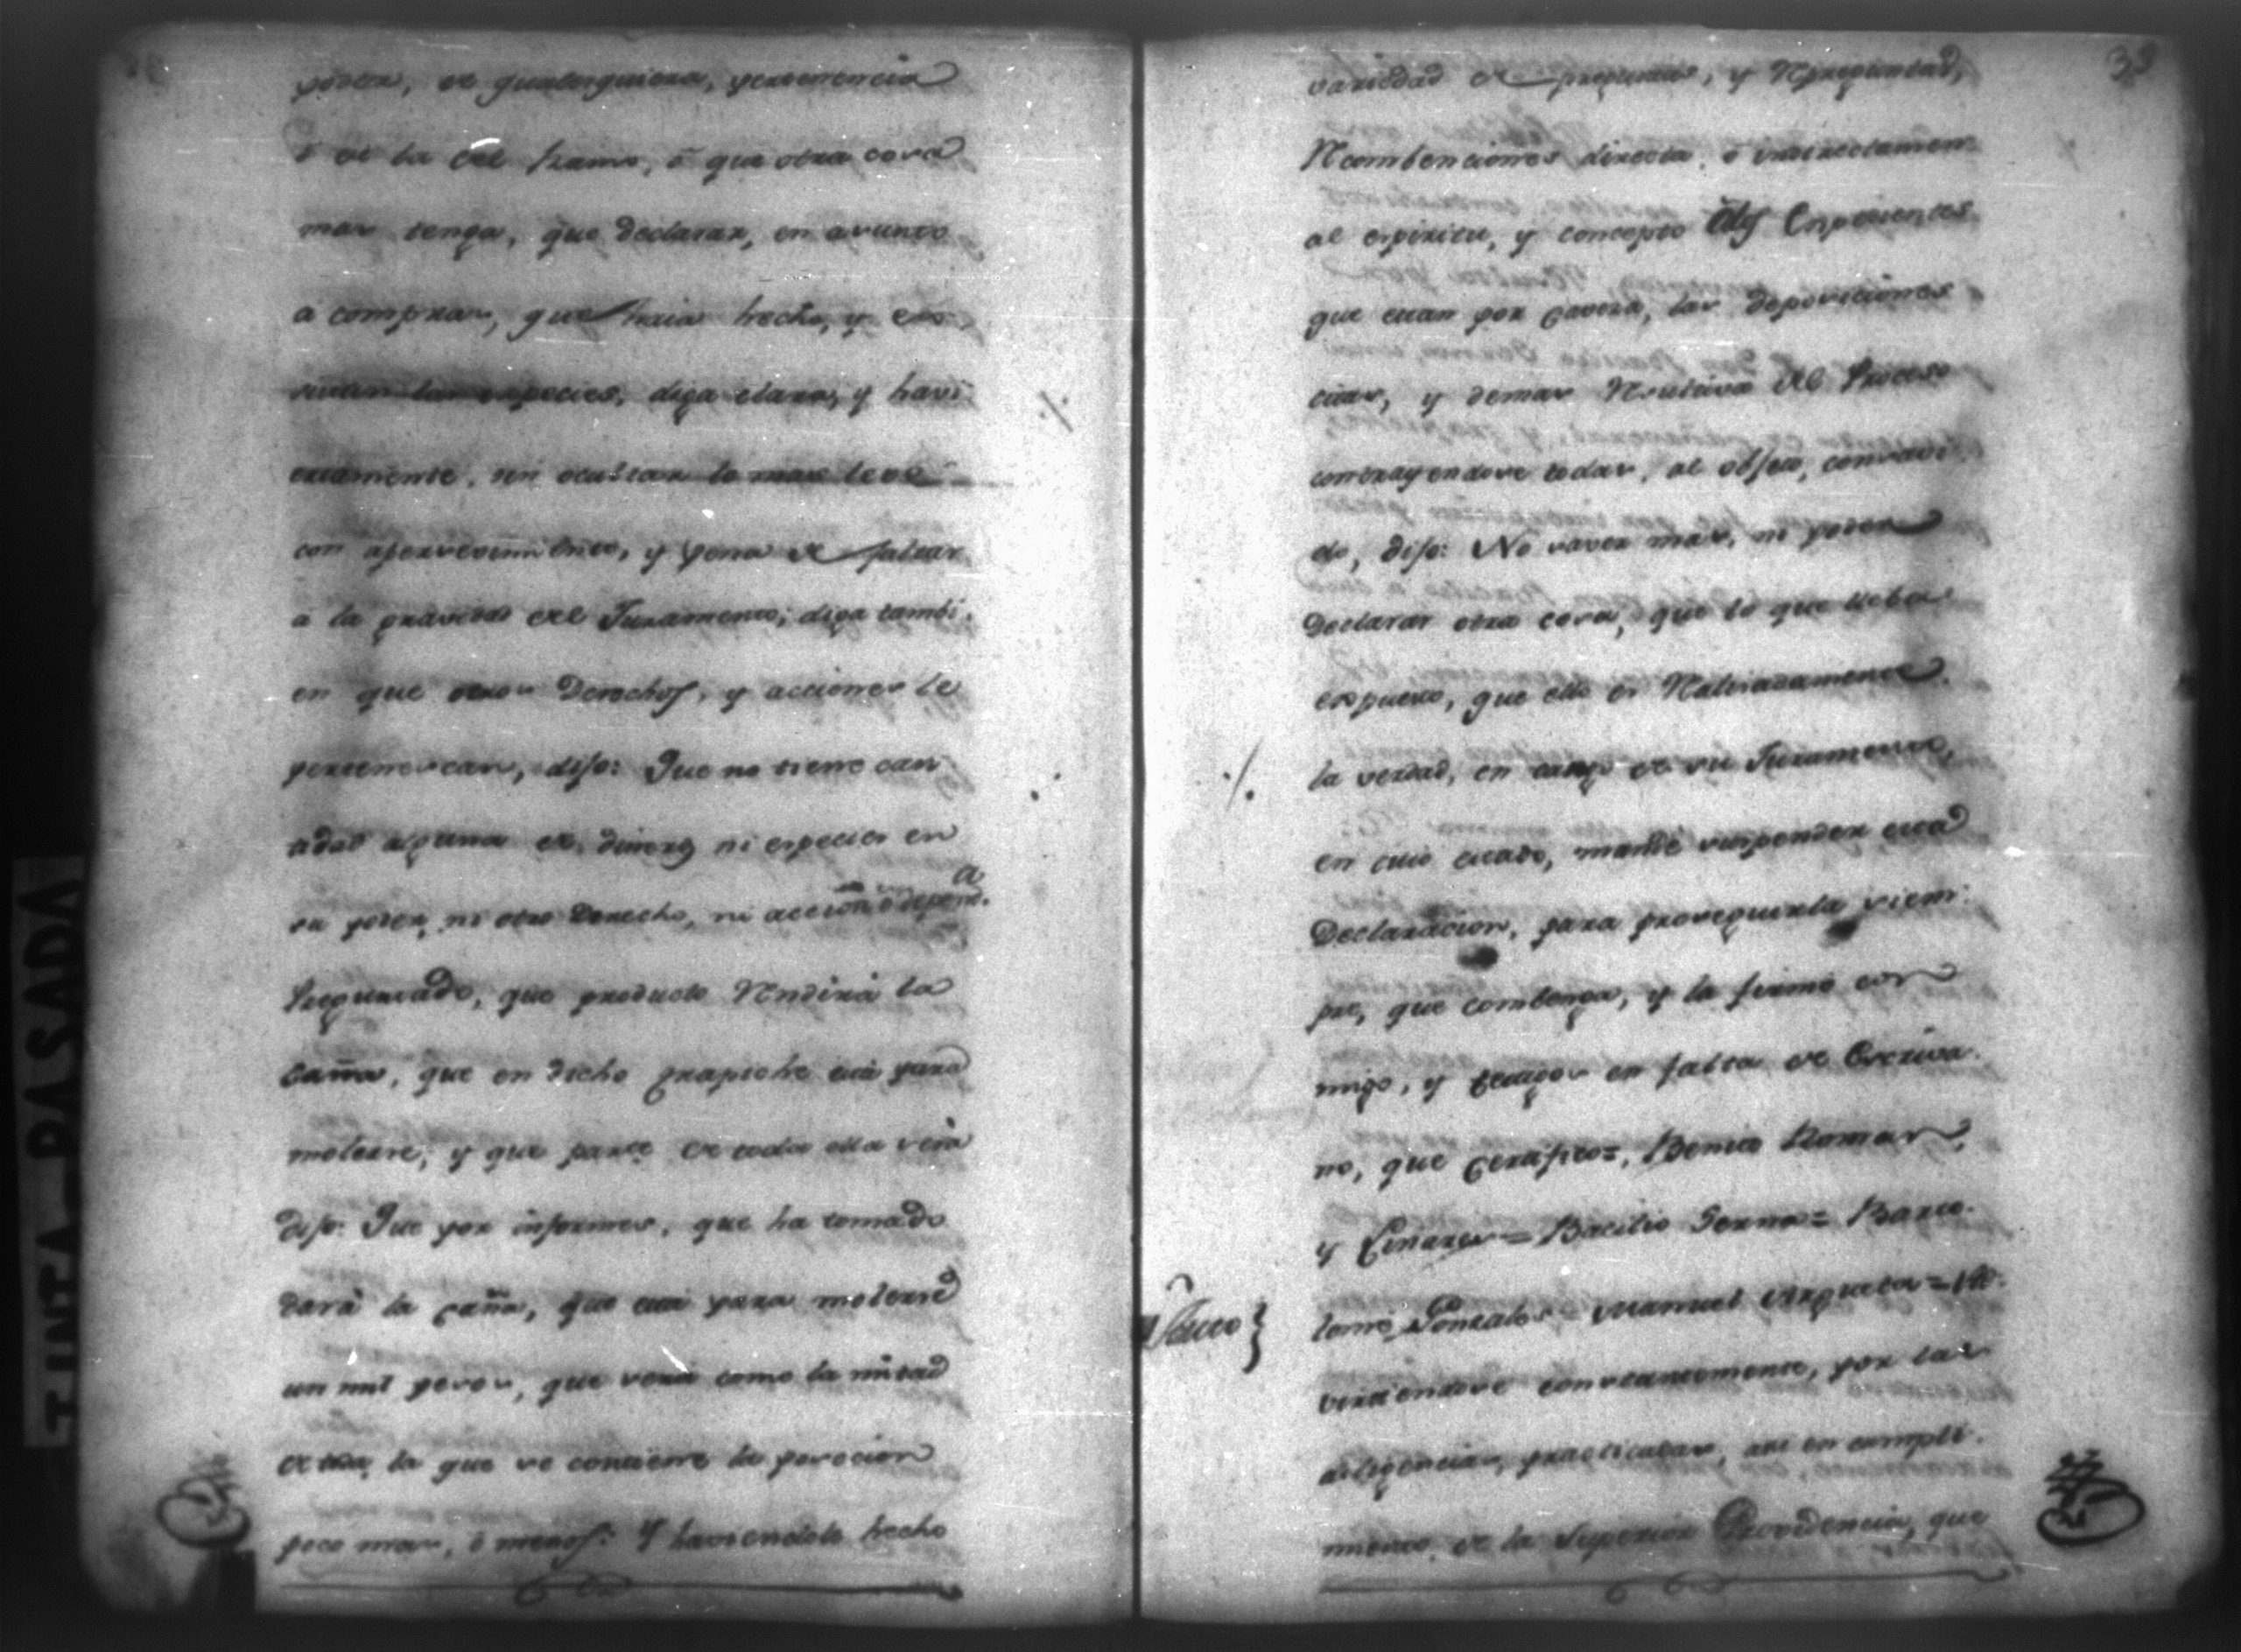 poder, de qualesquiera, pertenencia
ó de la del Ramo, ó que otra cosa
mas tenga, que declarar, en asunto
a compras, que haia hecho, y en
especies, diga clara, y havi
ertamente, sin ocultar lo mas leve
con apersevimiento, y pena de faltar
a la gravedad del Juramento; diga tambi
en que otros Derechos, y acciones le
pertenescan, dijo: Que no tiene can
tidad alguna de dinero, ni especies en
su poder, ni otro Derecho, ni accion
Preguntado, que producto Rendirá la
caña, que en dicho trapiche está para
molerse, y que parte de toda ella será
dijo: Que por informes, que ha tomado
dará la caña, que está para molerse
un mil pesos, que será como la mitad
de toda la que se contiene la posecion
poco mas, ó menos: Y haviendole hecho
38
variedad de preguntas, y Repreguntas,
Recombenciones directa, é indirectamente
al espiritu, y concepto de los Expedientes
que estan por cavesa, las deposiciones
citas, y demas Resultiva del Proceso
contrayendose todas, al objeto, consavi
do, dijo: No saver mas, ni poder
Declarar otra cosa, que lo que lleba
expuesto, que ello es Relasionadamente
la verdad, en cargo de su Juramento,
en cuio estado, mandé suspender esta
Declaracion, para proseguirla siem
pre, que combenga, y la firmó con
migo, y testigos en falta de Escriva
no, que certifico=, Benito Ramas,
y Linares = Bacilio Serna = Barto
lomé Gonzales = Manuel Argueta = Ad
virtiendose constantemente, por las
diligencias, practicadas, asi en cumpli
miento de la Superior Providencia, que
Auto
TINTA PASADA